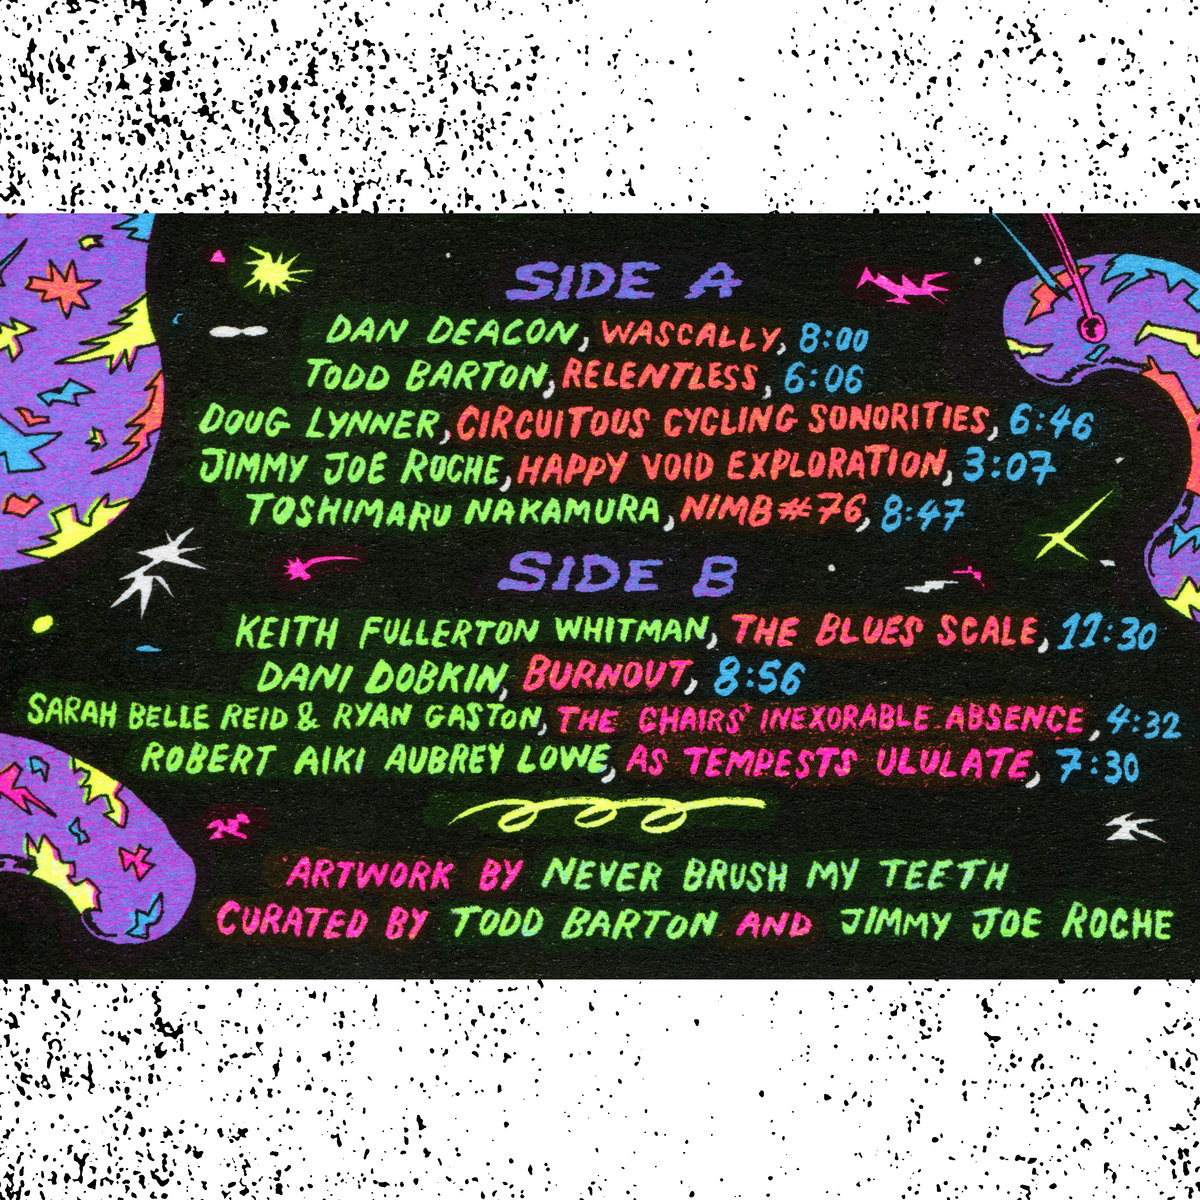 SIDE A
DAN DEACON, WASCALLY, 8:00
TODD BARTON, RELENTLESS, 6:06
DOUG LYNNER, CIRCUITOUS CYCLING SONORITIES, 6:46
JIMMY JOE ROCHE, HAPPY VOID EXPLORATION, 3:07
TOSHIMARU NAKAMURA, NIMB#76, 8:47
SIDE B
KEITH FULLERTON WHITMAN, THE BLUES SCALE, 11:30
DANI DOBKIN, BURNOUT, 8:56
SARAH BELLE REID & RYAN GASTON, THE CHAIRS' INEXORABLE ABSENCE, 4:32
ROBERT AIKI AUBREY LOWE, AS TEMPESTS ULULATE, 7:30
ARTWORK BY NEVER BRUSH MY TEETH
CURATED BY TODD BARTON AND JIMMY JOE ROCHE